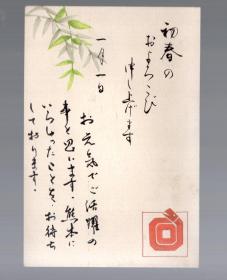 初春の
およろこび
申し上げます
一月一日
お元気でご活躍の
事と思います。熊本に
いらっしたときは、お待ち
して おります。